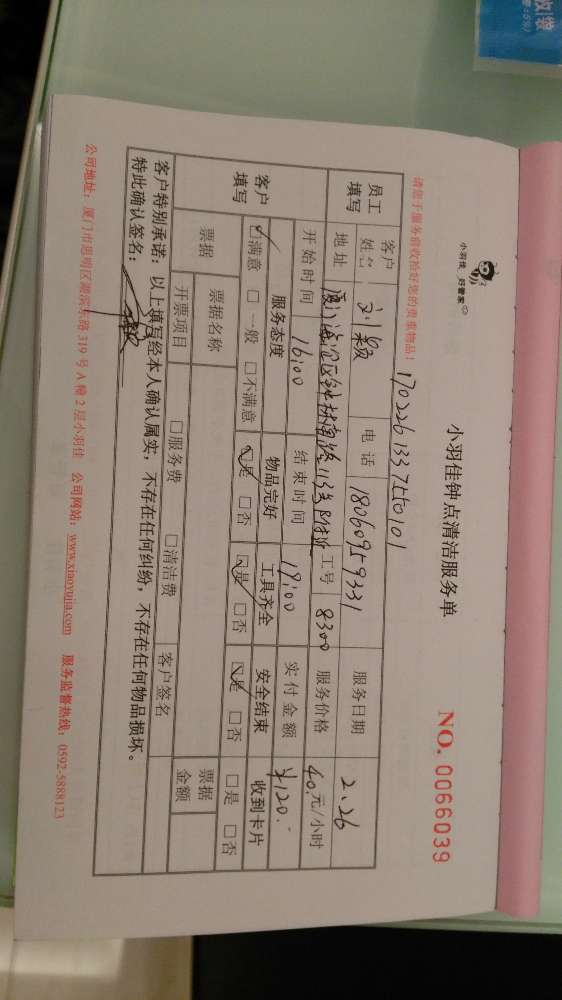 小羽佳 好管家
小羽佳钟点清洁服务单
NO. 0066039
请您于服务前收拾好您的贵重物品！
员工填写 客户姓名 刘颖 电话 18060959331 服务日期 2.26
地址 工号 8300 服务价格 40元/小时
开始时间 16:00 结束时间 19:00 实付金额 ¥120.
客户填写 服务态度 物品完好 工具齐全 安全结束 收到卡片
☑满意 □一般 □不满意 ☑是 □否 ☑是 □否 ☑是 □否 □是 □否
票据 票据名称 票据金额
开票项目 □服务费 □清洁费 客户签名
客户特别承诺：以上填写经本人确认属实，不存在任何纠纷，不存在任何物品损坏。
特此确认签名：
公司地址：厦门市思明区湖滨东路319号A幢2层小羽佳 公司网站：www.xiaoyujia.com 服务监督热线：0592-5888123